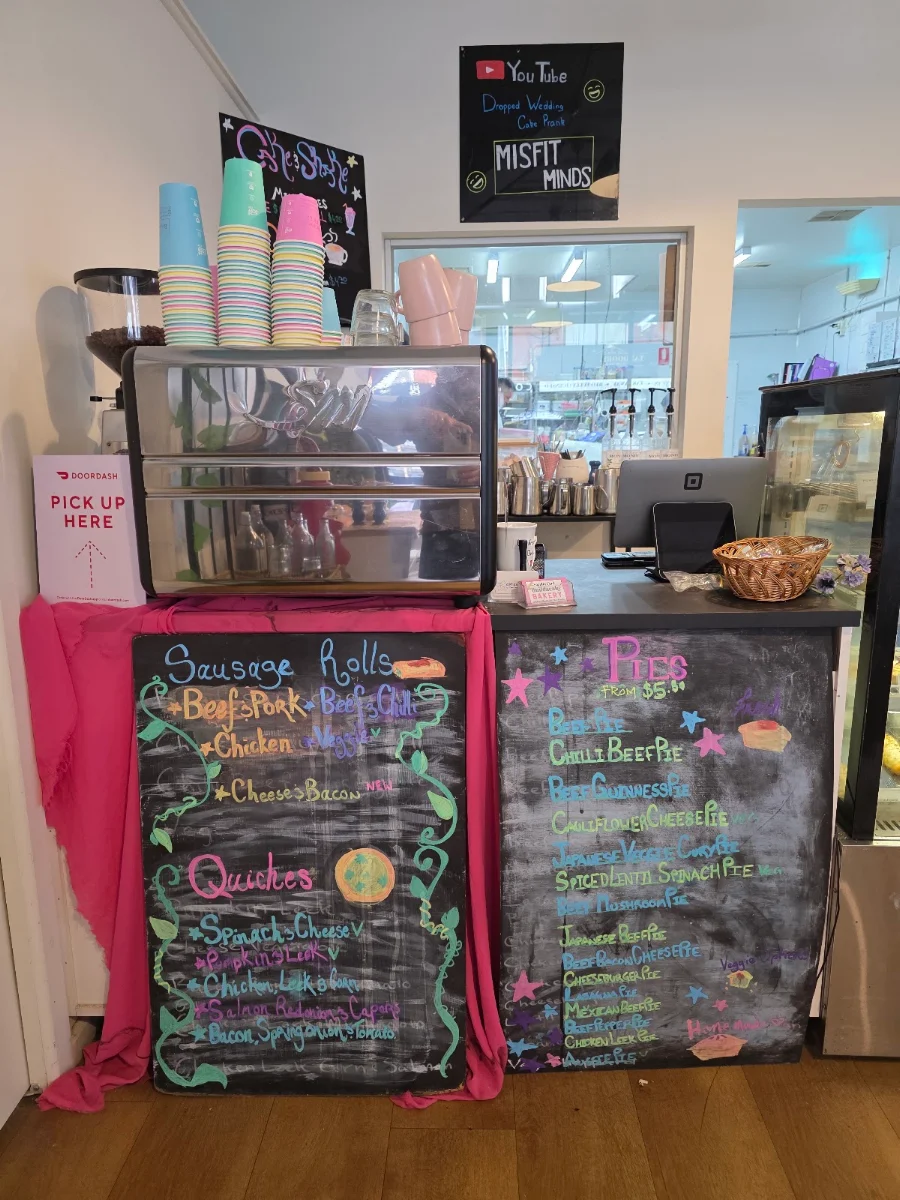 YouTube
Dropped Wedding
Cake Prank
MISFIT
MINDS
Cake & Shake
DOORDASH
PICK UP
HERE
San
BAKERY
Sausage Rolls
Beef & Pork
Beef & Chilli
Chicken
Veggie V
Cheese & Bacon NEW
Quiches
Spinach & Cheese V
Pumpkin & Leek V
Chicken, Leek &
Salmon Redonion & Capers
Bacon, Spring Onion & Tomato
PIES
FROM $5.50
Fresh
BEEF PIE
CHILLI BEEF PIE
BEEF GUINNESS PIE
CAULIFLOWER CHEESE PIE
JAPANESE VEGGIE CURY PIE
SPICED LENTIL SPINACH PIE
BEEF MUSHROOM PIE
JAPANESE BEEF PIE
BEEF BACON CHEESE PIE
CHEESEBURGER PIE
MEXICAN BEEF PIE
BEEF PEPPER PIE
CHICKEN LEEK PIE
Veggie